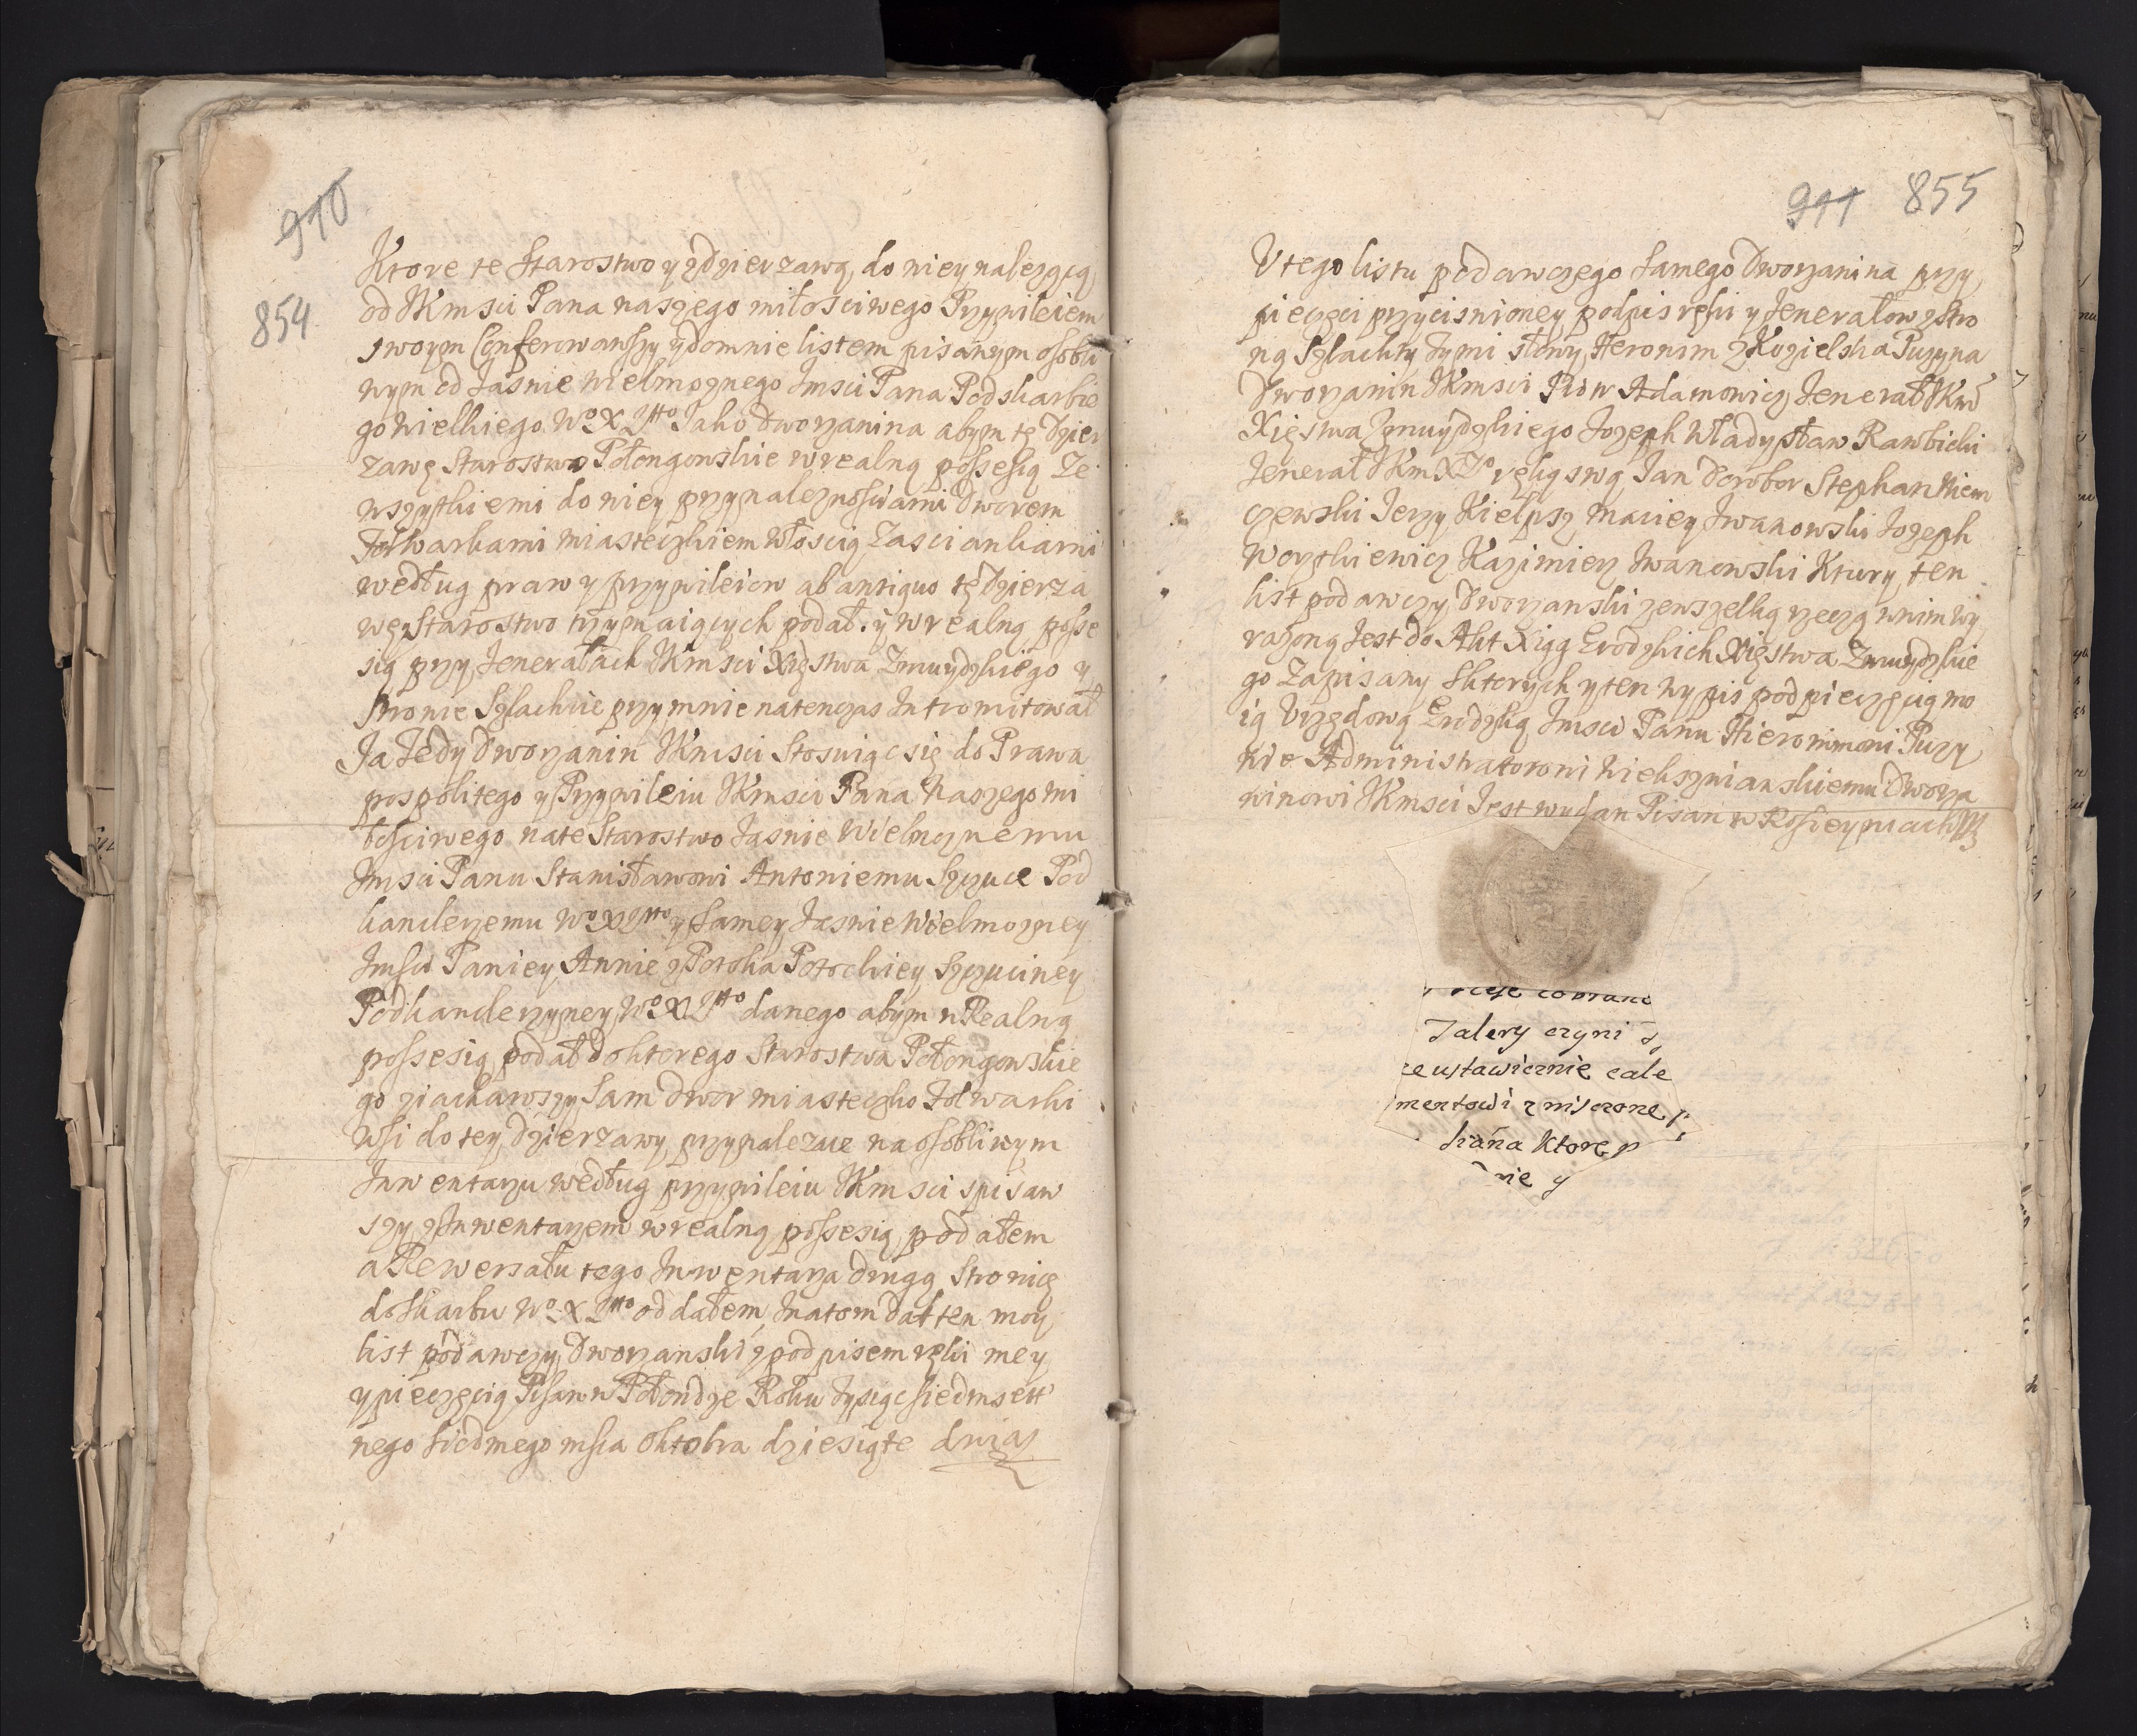 910
854
Ktore te Starostwo y Dzierzawą do niey nalezącą
od JKmsci Pana naszego miłosciwego Przywileiem
swoym Conferowawszy y do mnie listem pisanym osobli
wym od Jasnie Wielmoznego Jmsci Pana Podskarbie
go Wielkiego Wº X Lttº Jako Dworzanina abym tę Dzier
zawę Starostwo Połongowskie w realną possesią Ze
wszystkiemi do niey przynaleznosciami Dworem
Folwarkami Miasteczkiem Włoscią Zasciankami
według praw y przywileiow ab antiquo tę Dzierza
wę y Starostwo trzymaiących podał y w realną posse
sią przy Jenerałach JKmsci Xięstwa Zmuydzkiego y
Stronie Szlachcie przy mnie natenczas Intromitował
Ja Tedy Dworzanin JKmsci Stosuiąc się do Prawa
pospolitego y Przywileiu JKmsci Pana Naszego mi
łosciwego na te Starostwo Jasnie Wielmoznemu
Jmsci Panu Stanisławowi Antoniemu Szczuce Pod
kanclerzemu Wº X Lttº y Samey Jasnie Wielmozney
Jmsci Paniey Annie z Potoka Potockiey Szczuciney
Podkanclerzyney Wº X Lttº danego abym w Realną
possesią podał do ktorego Starostwa Połongowskie
go ziachawszy Sam Dwor miasteczko Folwarki
Wsi do tey Dzierzawy przynalezne na osobliwym
Inwentarzu według przywileiu JKmsci spisaw
szy z Inwentarzem w realną possesią podałem
a Rewersału tego Inwentarza drugą Stronicę
do Skarbu Wº X Lttº oddałem Ina tom dał ten moy
list podawczy Dworzanski z podpisem ręki mey
y pieczęcią Pisan w Połondze Roku Tysiąc siedmset
nego siodmego msca Oktobra dziesiąte dnia
911 855
U tego listu podawczego Samego Dworzanina przy
pieczęci przycisnioney podpis ręki y Jenerałow z Stro
ną Szlachtą tymi słowy Heronim z Kozielska Puzyna
Dworzanin JKmsci Piotr Adamowicz Jenerał JKm
Xięstwa Zmuydzkiego Jozeph Władysław Rawbicki
Jenerał JKm X Zº ręką swą Jan Dorobor Stephan Niem
czewski Jerzy Kielpsz Maciey Iwanowski Jozeph
Woytkiewicz Kazimierz Iwanowski Ktury ten
list podawczy Dworzanski ze wszelką rzeczą w nim wy
razoną Jest do Akt Xiąg Grodzkich Xięstwa Zmuydzkie
go Zapisany Sktorych y ten wypis pod pieczęcią mo
ią Urzędową Grodzką Jmsci Panu Hieronimowi Puzy
nie Administratorowi Wieksznianskiemu Dworza
ninowi JKmsci Jest wydan Pisan w Rosieyniach
Talery czyni
ce ustawicznie cale
mentowi zniszczone
ktore
nie y